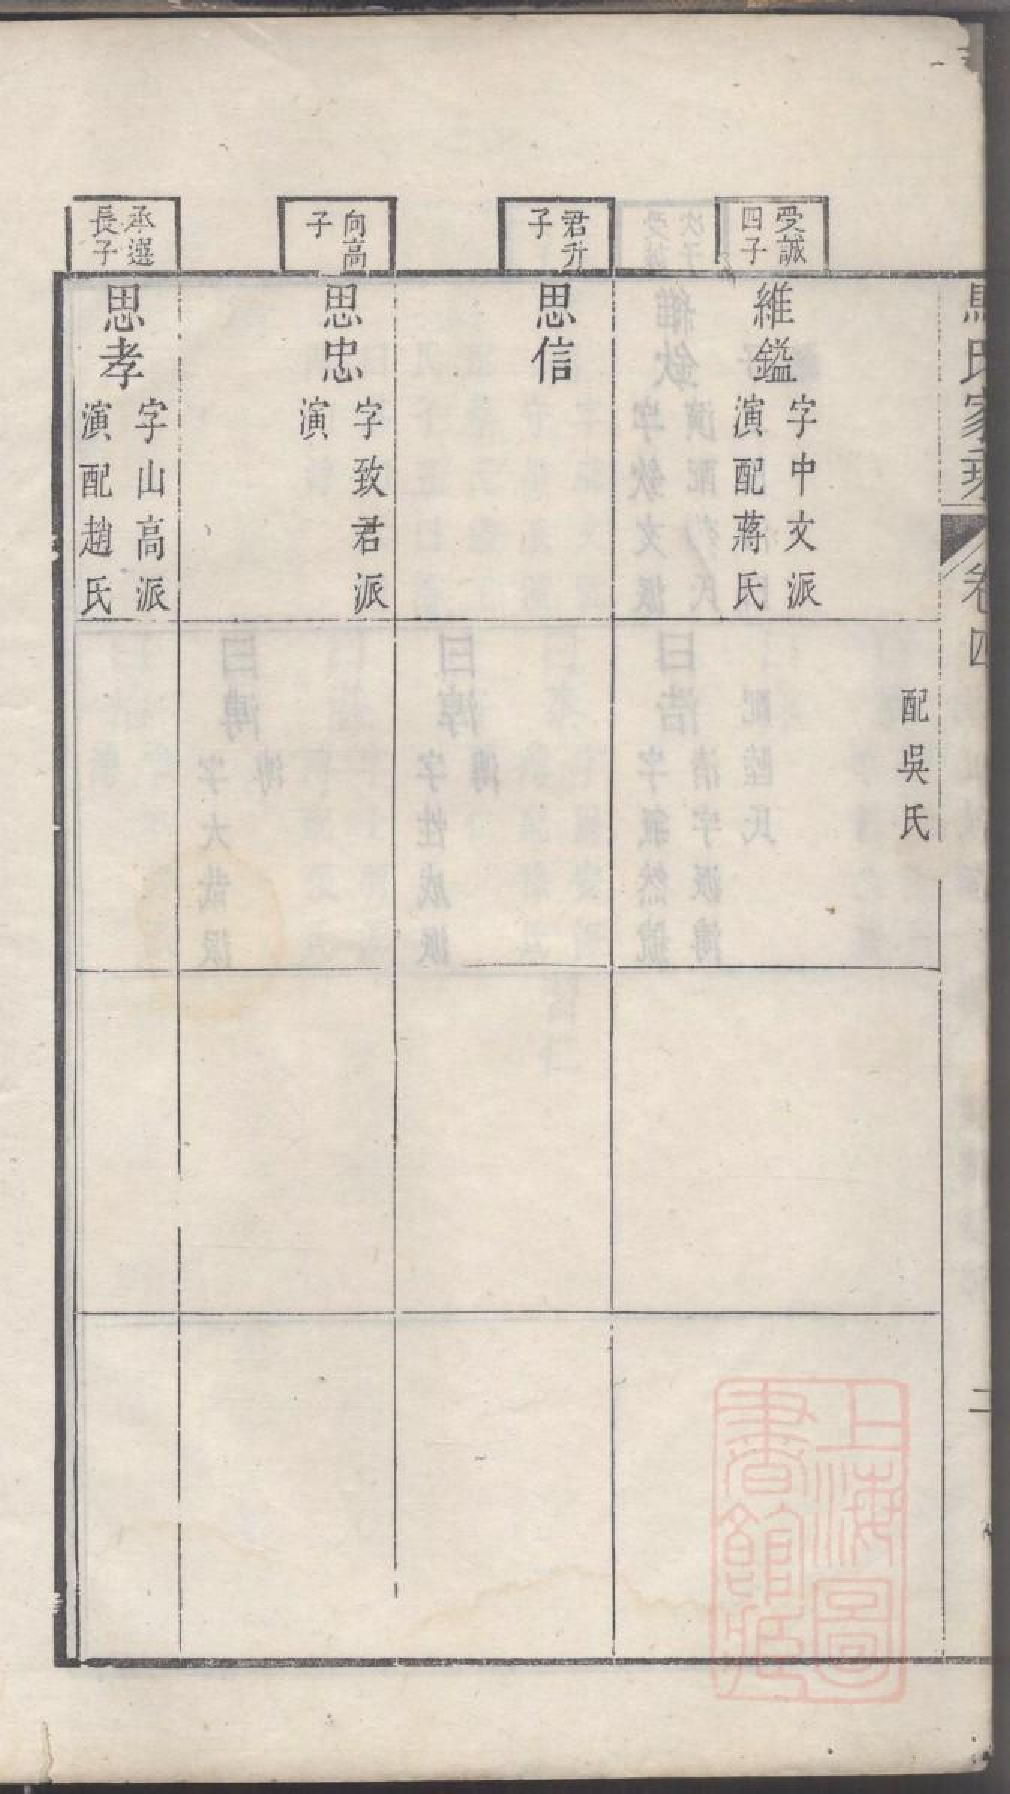 馬氏家乘
卷四
二
配吳氏
受誠
四子
維鎰
字中文派
演配蔣氏
君升
子
思信
向高
子
思忠
字致君派
演
承選
長子
思孝
字山高派
演配趙氏
上海圖
書館藏